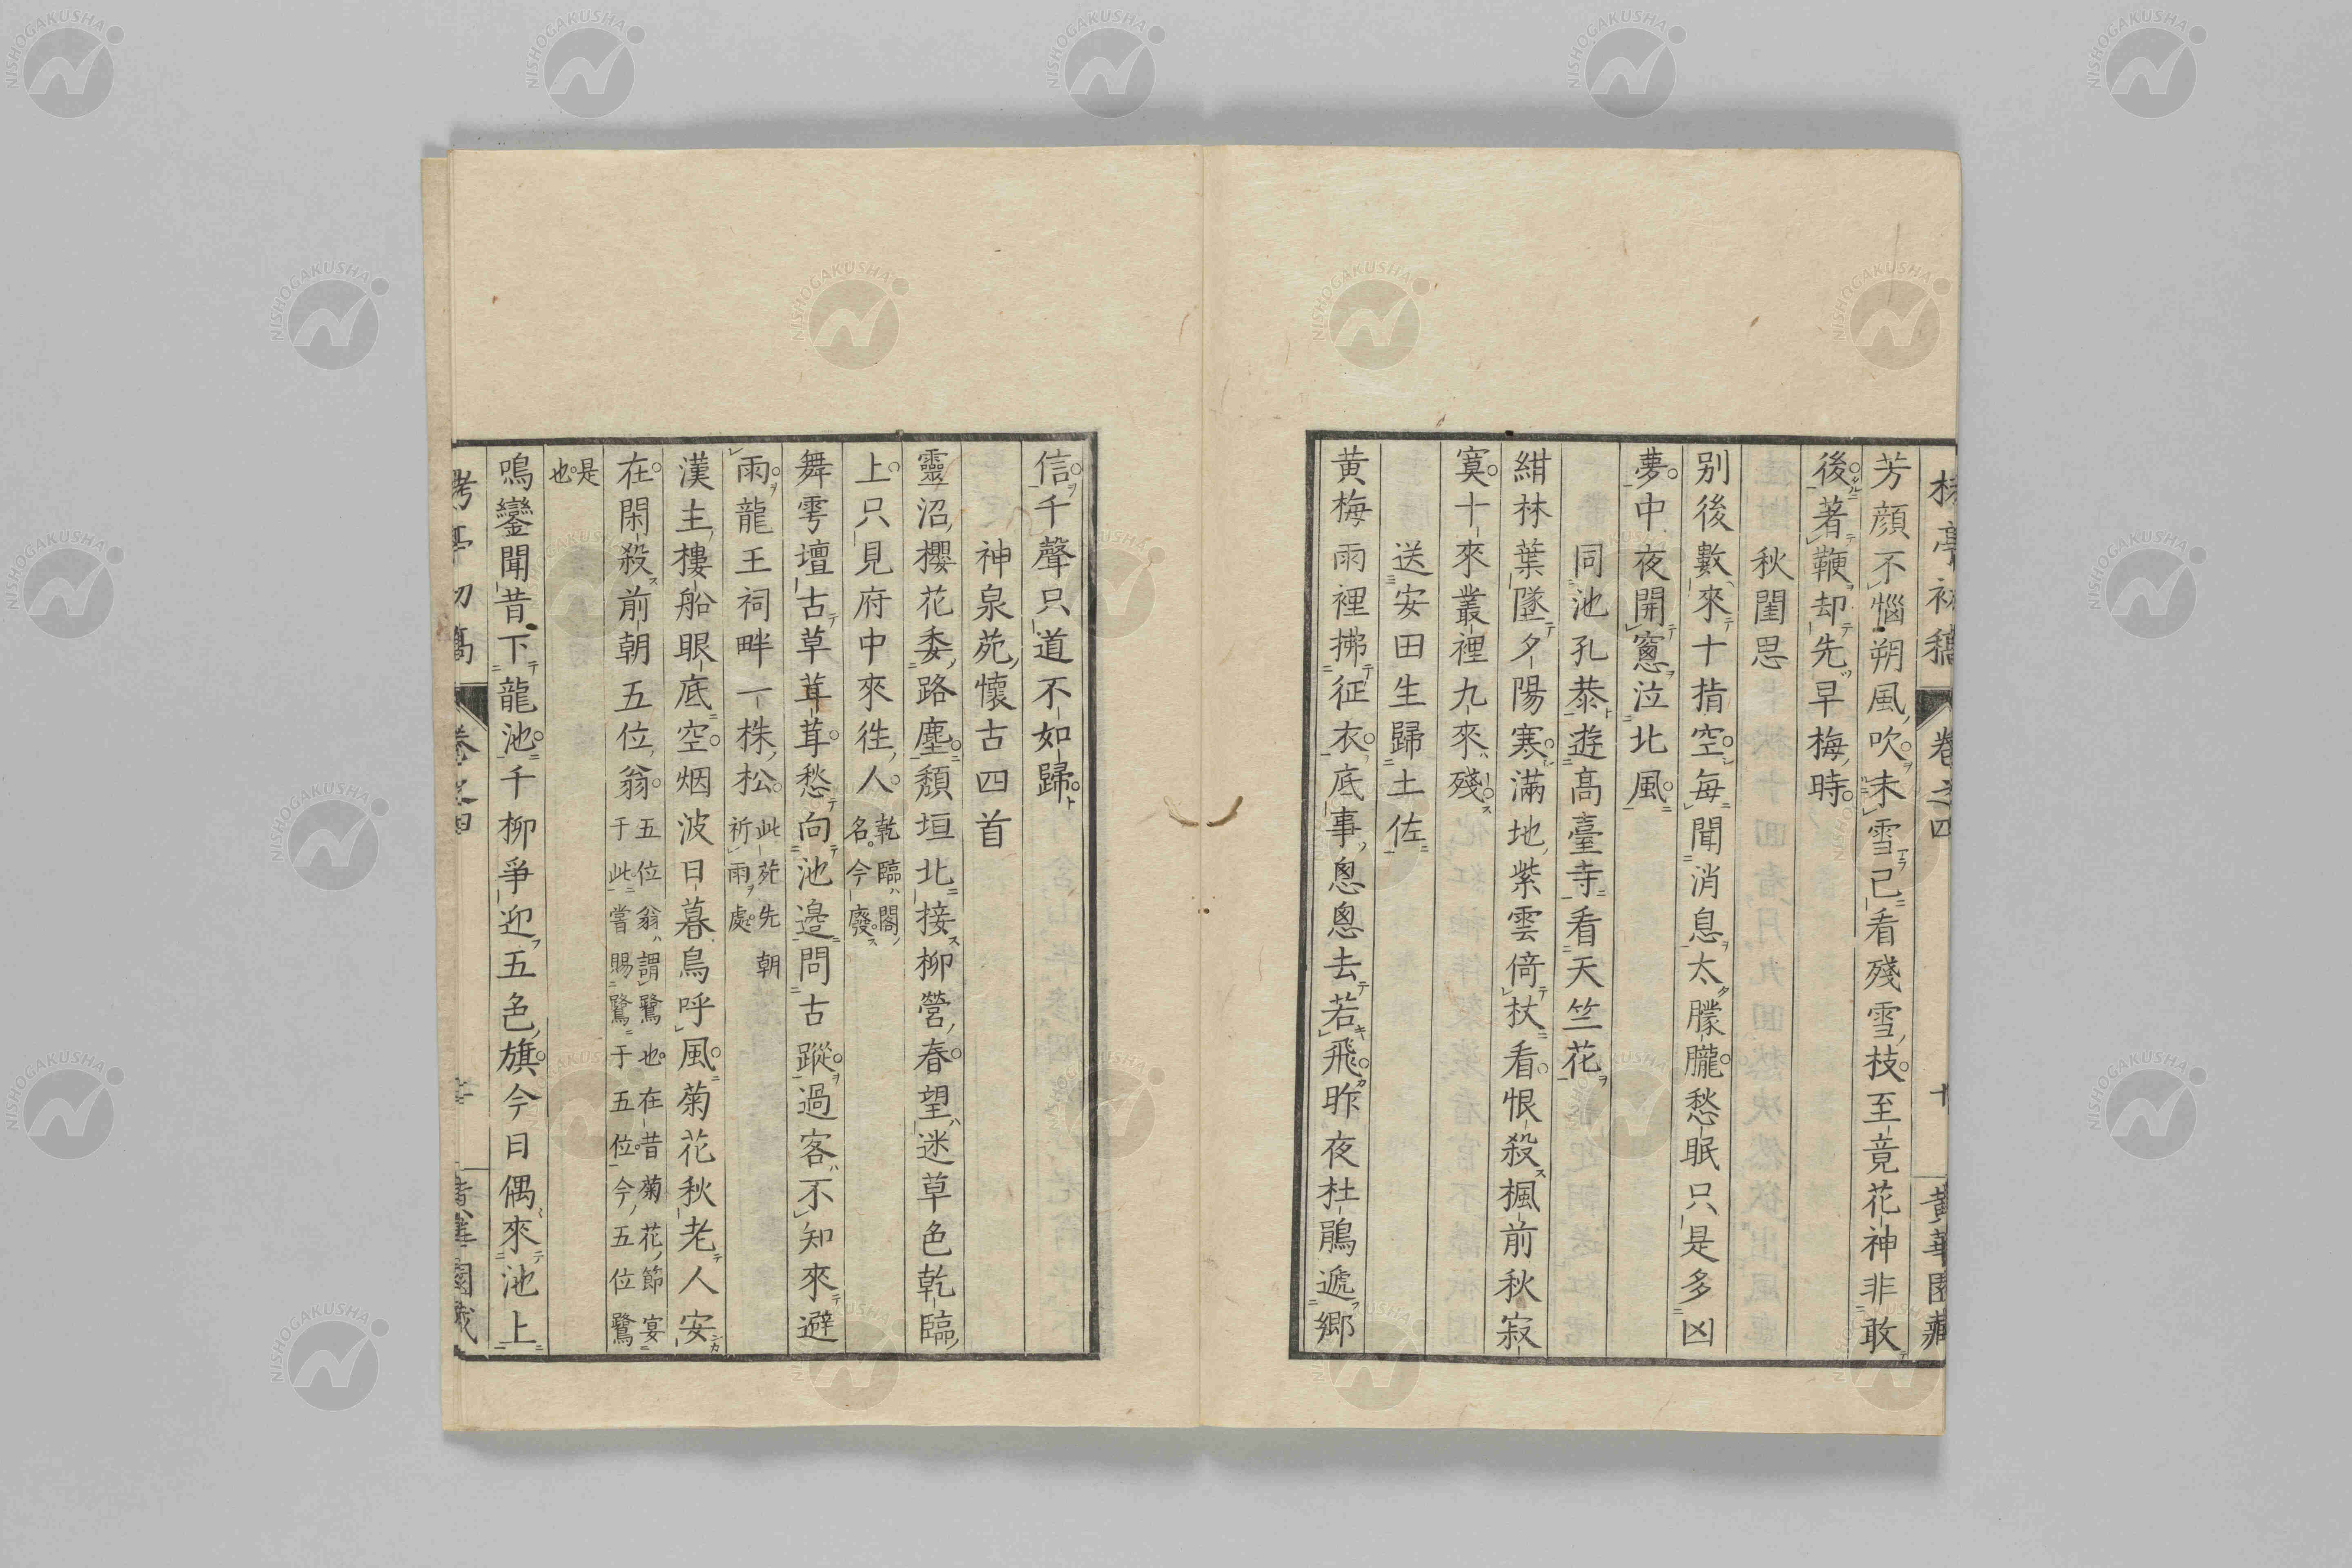 亭初稿 卷之四 十 黄華園藏
芳顔不惱朔風吹未雪已看殘雪枝至竟花神非敢
後著鞭却先早梅時
秋閨思
別後數來十指空每聞消息太朦朧愁眠只是多凶
夢中夜開窻泣北風
同池孔恭遊髙臺寺看天竺花
紺林葉墜夕陽寒滿地紫雲倚杖看恨殺楓前秋寂
寞十來叢裡九來殘
送安田生歸土佐
黄梅雨裡拂征衣底事悤悤去若飛昨夜杜鵑遞鄉
信千聲只道不如歸
神泉苑懷古四首
靈沼櫻花委路塵頽垣北接柳營春望迷草色乾臨
上只見府中來徃人乾臨閣名今廢
舞雩壇古草茸茸愁向池邉問古蹤過客不知來避
雨龍王祠畔一株松此苑先朝祈雨處
漢主樓船眼底空烟波日暮鳥呼風菊花秋老人安
在閑殺前朝五位翁五位翁謂鷺也在昔菊花節宴于此嘗賜鷺于五位今五位鷺
是也
鳴鑾聞昔下龍池千柳爭迎五色旗今日偶來池上
亭初稿 卷之四 黄華園藏
NISHOGAKUSHA